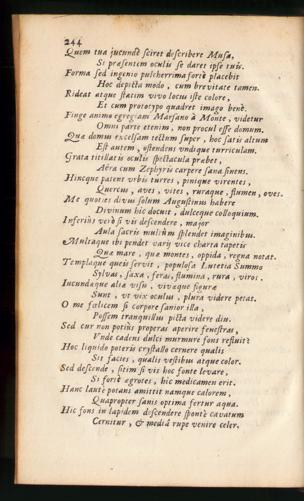 244
Quem tua jucundè sciret describere Musa,
Si præsentem oculis se daret ipse tuis.
Forma sed ingenio pulcherrima fortè placebit
Hoc depicta modo, cum brevitate tamen.
Rideat atque statim vivo locus iste colore,
Et cum prototypo quadret imago benè.
Finge animo egregiam Marsano à Monte, videtur
Omni parte etenim, non procul esse domum.
Qua domus excelsam tectum super, hoc satis altum
Est autem, ostendens undique turriculam.
Grata titillatis oculis spectacula præbet,
Aëra cum Zephyris carpere sana sinens.
Hincque patent urbis turres, pinique virentes,
Quercus, aves, vites, ruraque, flumen, oves.
Me quoties divus solum Augustinus habere
Divinum hic docuit, dulceque colloquium.
Inferiùs verò si vis descendere, major
Aula sacris multùm splendet imaginibus.
Multaque ibi pendet varij vice charta tapetis
Quæ mare, quæ montes, oppida, regna notat.
Templaque queis servit, populosa Lutetia Summo
Sylvas, saxa, feras, flumina, rura, viros.
Jucundæque aliæ visu, vivæque figuræ
Sunt, ut vix oculus, plura videre petat.
O me fœlicem si corpore sanior illa,
Possem tranquillus picta videre diu.
Sed cur non potiùs properas aperire fenestras,
Unde cadens dulci murmure fons restitit?
Hoc liquido poteris crystallo cernere qualis
Sit facies, qualis vestibus atque color.
Sed descende, sitim si vis hoc fonte levare,
Si fortè ægrotes, hic medicamen erit.
Hanc lautè potans amittit namque calorem,
Quapropter sanis optima fertur aqua.
Hic fons in lapidem descendere spontè cavatum
Cernitur, & mediâ rupe venire celer.